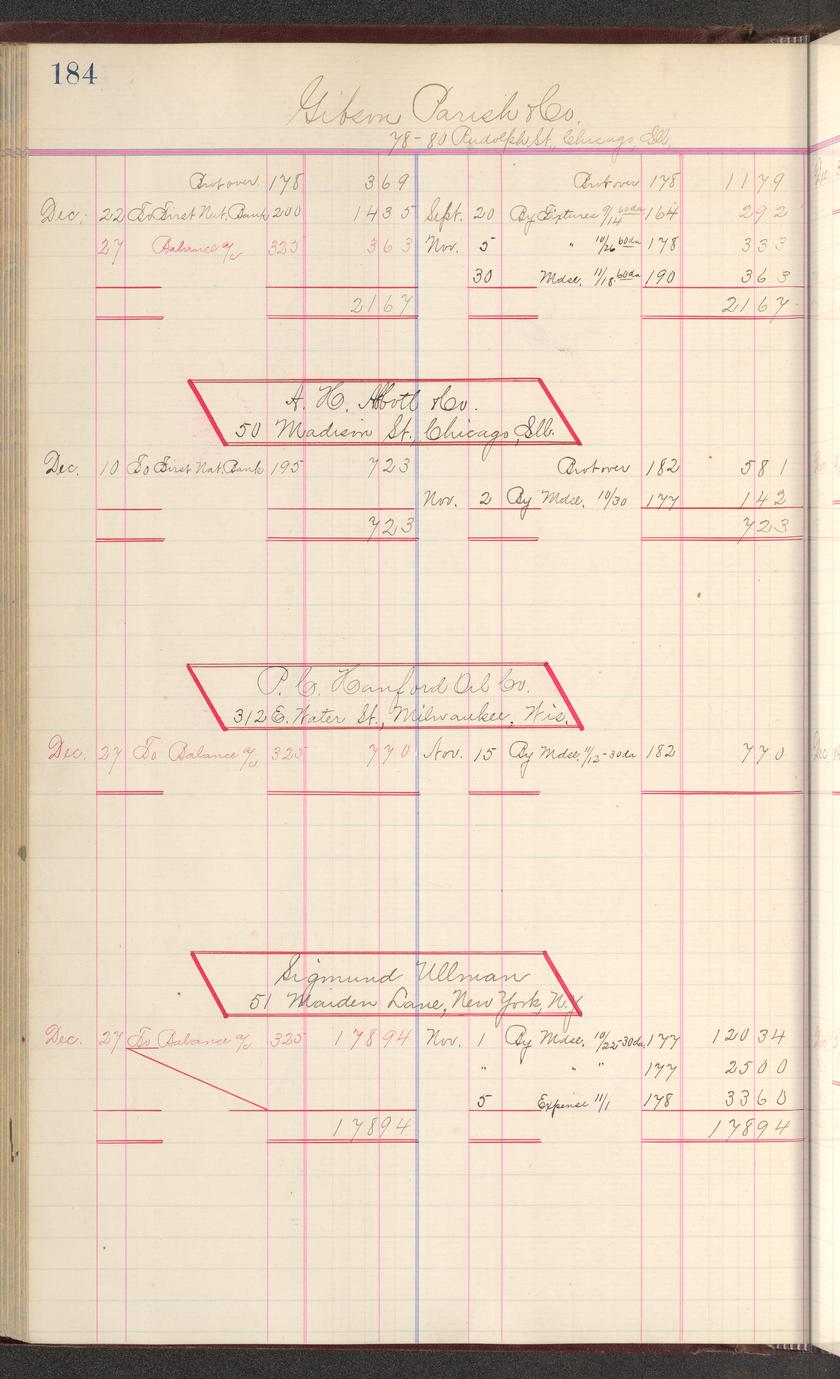 184
Gibson Parish & Co.
78-80 Rudolph St., Chicago, Ill.
Brot over. 178 369 Brot over 178 1179
Dec. 22 To First Nat. Bank 200 1435 Sept. 20 By Fixtures 9/14 60da 164 292
27 Balance a/c 325 363 Nov. 5 " 10/26 60da 178 333
30 Mdse. 11/18 60da 190 363
2167 2167
A. H. Abbott & Co.
50 Madison St., Chicago, Ill.
Dec. 10 To First Nat. Bank 195 723 Brot over 182 581
Nov. 2 By Mdse. 10/30 177 142
723 723
P. C. Hanford Oil Co.
312 E. Water St., Milwaukee, Wis.
Dec. 27 To Balance a/c 325 770 Nov. 15 By Mdse. 11/12-30da 182 770
Sigmund Ullman
51 Maiden Lane, New York, N.Y.
Dec. 27 To Balance a/c 325 17894 Nov. 1 By Mdse. 10/22-30da 177 12034
" " " 177 2500
5 Expense 11/1 178 3360
17894 17894